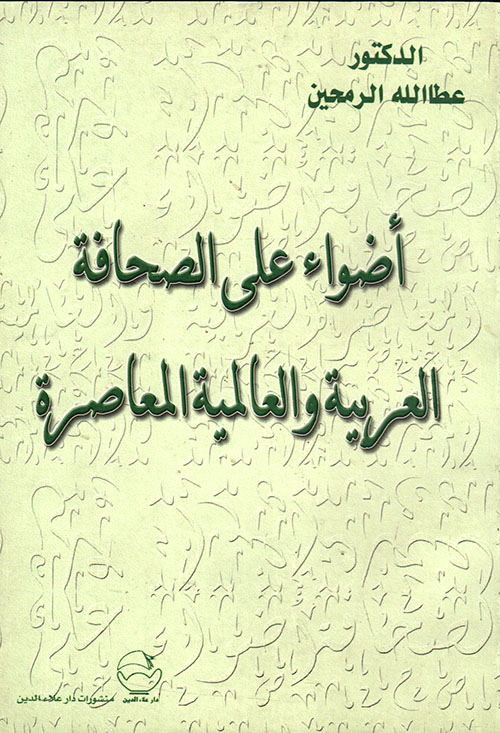 الدكتور
عطاالله الرمحين
أضواء على الصحافة
العربية والعالمية المعاصرة
دار علاء الدين
منشورات دار علاء الدين